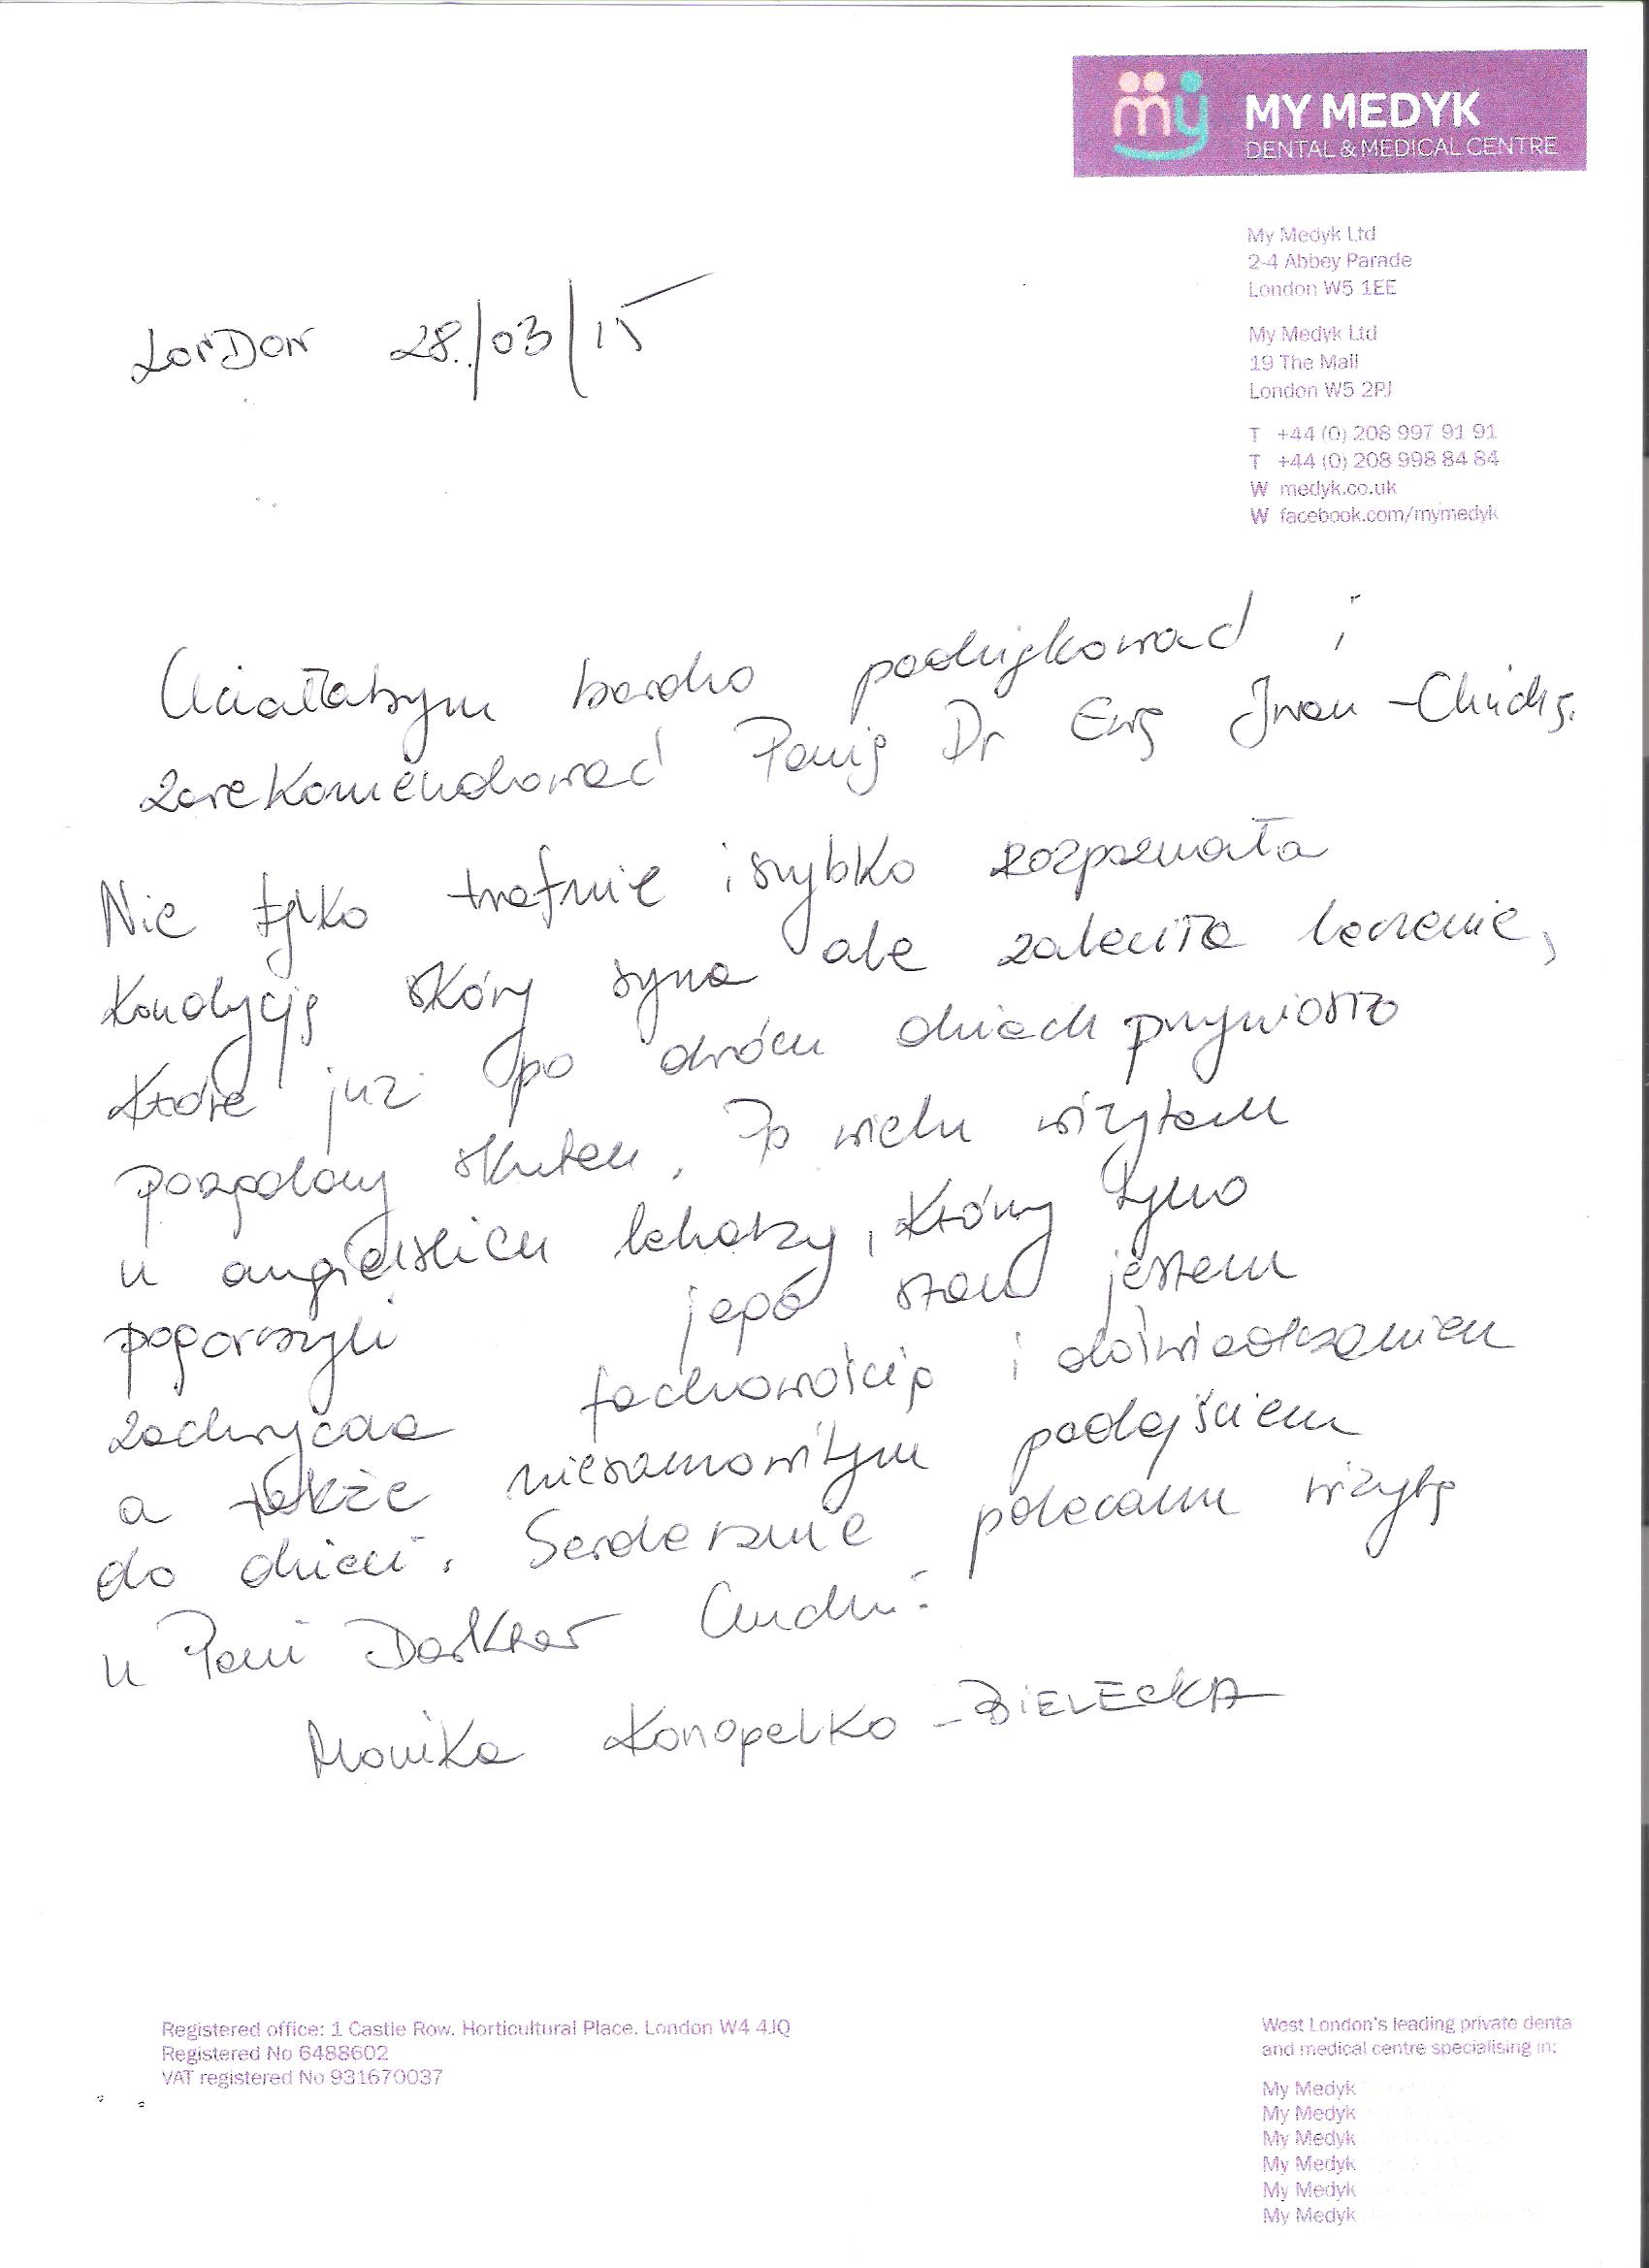 my MY MEDYK
DENTAL & MEDICAL CENTRE
My Medyk Ltd
2-4 Abbey Parade
London W5 1EE
My Medyk Ltd
19 The Mall
London W5 2PJ
T +44 (0) 208 997 91 91
T +44 (0) 208 998 84 84
W medyk.co.uk
W facebook.com/mymedyk
London 28./03/15
Chciałabym bardzo podziękować i
zarekomendować Panią Dr Ewę Iwan-Chuchą.
Nie tylko trafnie i szybko rozpoznała
kondycję skóry syna ale zaleciła leczenie,
które już po dwóch dniach przyniosło
pożądany skutek. Po wielu wizytach
u angielskich lekarzy, którzy tylko
pogorszyli jego stan jestem
zachwycona fachowością i doświadczeniem
a także niesamowitym podejściem
do dzieci. Serdecznie polecam wizytę
u Pani Doktor
Monika Konopelko-BIELECKA
Registered office: 1 Castle Row. Horticultural Place. London W4 4JQ
Registered No 6488602
VAT registered No 931670037
West London's leading private denta
and medical centre specialising in:
My Medyk
My Medyk
My Medyk
My Medyk
My Medyk
My Medyk